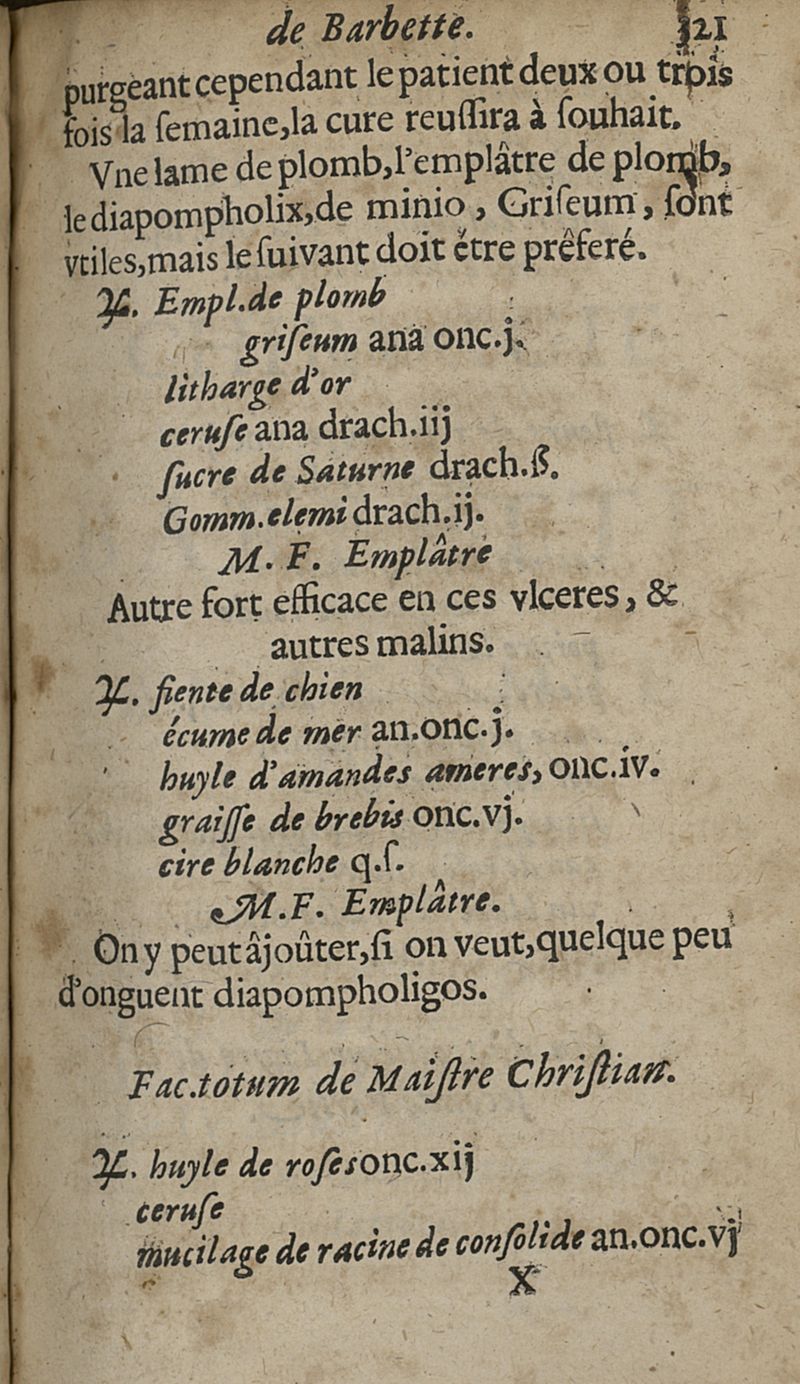 de Barbette. 321
purgeant cependant le patient deux ou trois
fois la ſemaine,la cure reuſſira à ſouhait.
Vne lame de plomb,l'emplâtre de plomb,
le diapompholix,de minio, Griſeum, ſont
vtiles,mais le ſuivant doit étre prêferé.
℞. Empl.de plomb
griſeum ana onc.j.
litharge d'or
ceruſe ana drach.iij
ſucre de Saturne drach.ß.
Gomm.elemi drach.ij.
M. F. Emplâtre
Autre fort efficace en ces vlceres, &
autres malins.
℞. fiente de chien
écume de mer an.onc.j.
huyle d'amandes ameres, onc.iv.
graiſſe de brebis onc.vj.
cire blanche q.ſ.
M.F. Emplâtre.
On y peut âjoûter,ſi on veut,quelque peu
d'onguent diapompholigos.
Fac.totum de Maiſtre Chriſtian.
℞. huyle de roſes onc.xij
ceruſe
mucilage de racine de conſolide an.onc.vj
X